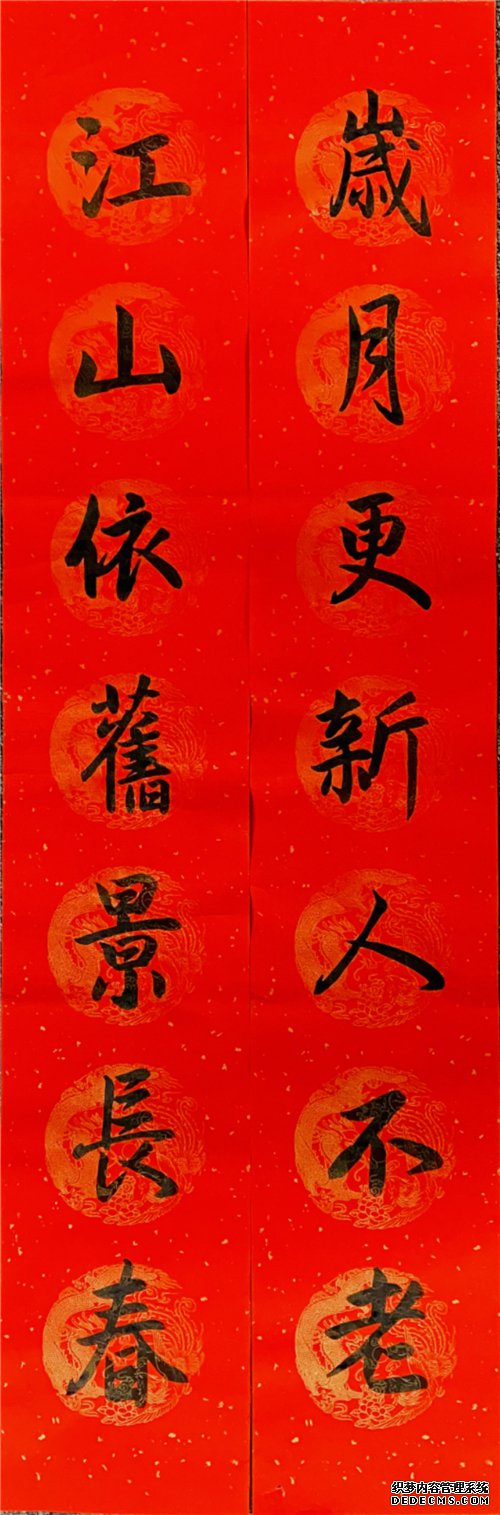 歲月更新人不老
江山依舊景長春
织梦内容管理系统
DEDECMS.COM